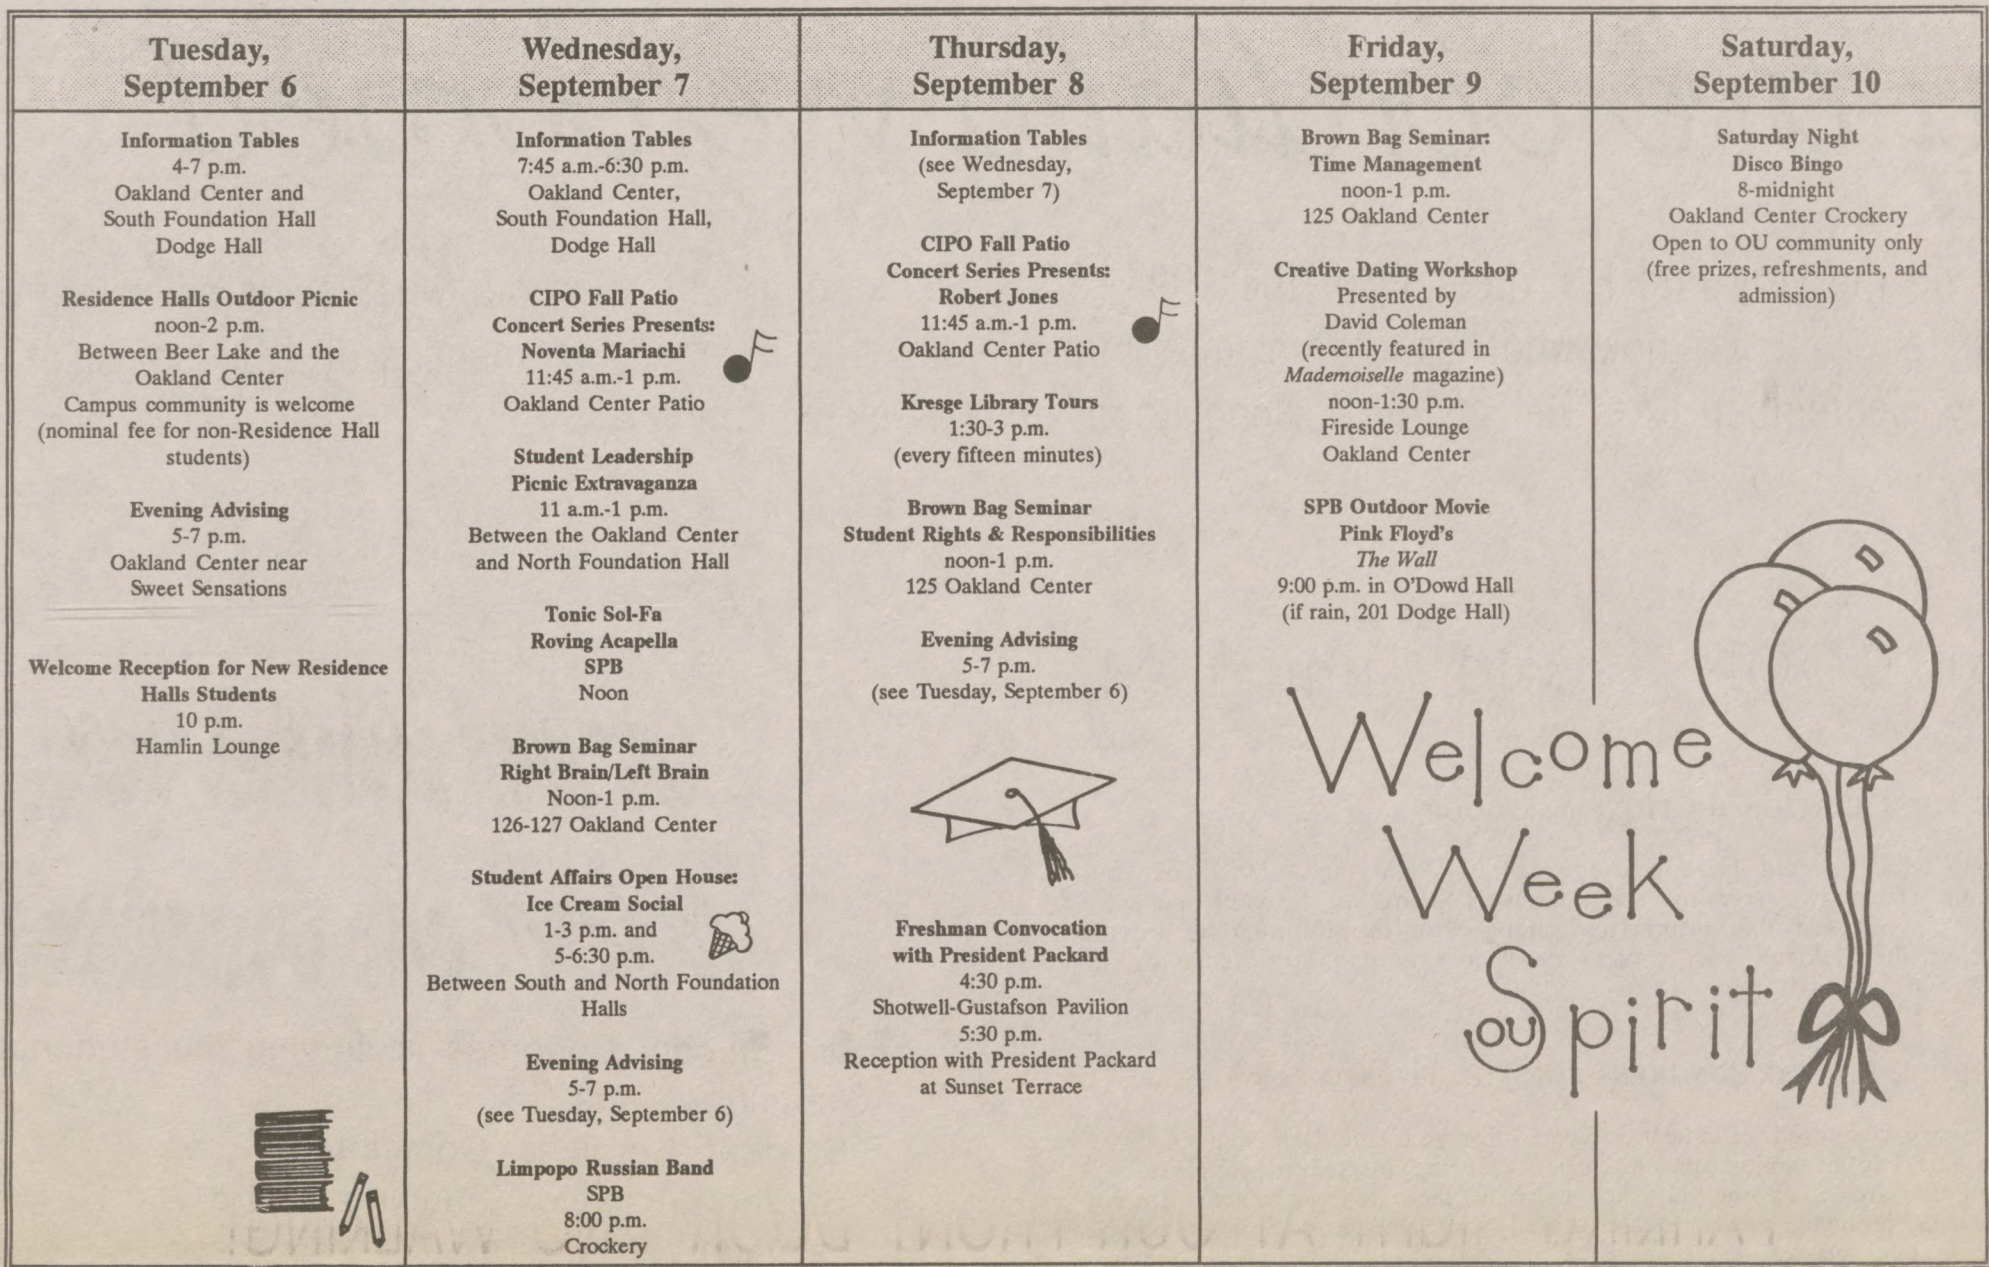 Tuesday,
September 6
Information Tables
4-7 p.m.
Oakland Center and
South Foundation Hall
Dodge Hall
Residence Halls Outdoor Picnic
noon-2 p.m.
Between Beer Lake and the
Oakland Center
Campus community is welcome
(nominal fee for non-Residence Hall
students)
Evening Advising
5-7 p.m.
Oakland Center near
Sweet Sensations
Welcome Reception for New Residence
Halls Students
10 p.m.
Hamlin Lounge
Wednesday,
September 7
Information Tables
7:45 a.m.-6:30 p.m.
Oakland Center,
South Foundation Hall,
Dodge Hall
CIPO Fall Patio
Concert Series Presents:
Noventa Mariachi
11:45 a.m.-1 p.m.
Oakland Center Patio
Student Leadership
Picnic Extravaganza
11 a.m.-1 p.m.
Between the Oakland Center
and North Foundation Hall
Tonic Sol-Fa
Roving Acapella
SPB
Noon
Brown Bag Seminar
Right Brain/Left Brain
Noon-1 p.m.
126-127 Oakland Center
Student Affairs Open House:
Ice Cream Social
1-3 p.m. and
5-6:30 p.m.
Between South and North Foundation
Halls
Evening Advising
5-7 p.m.
(see Tuesday, September 6)
Limpopo Russian Band
SPB
8:00 p.m.
Crockery
Thursday,
September 8
Information Tables
(see Wednesday,
September 7)
CIPO Fall Patio
Concert Series Presents:
Robert Jones
11:45 a.m.-1 p.m.
Oakland Center Patio
Kresge Library Tours
1:30-3 p.m.
(every fifteen minutes)
Brown Bag Seminar
Student Rights & Responsibilities
noon-1 p.m.
125 Oakland Center
Evening Advising
5-7 p.m.
(see Tuesday, September 6)
Freshman Convocation
with President Packard
4:30 p.m.
Shotwell-Gustafson Pavilion
5:30 p.m.
Reception with President Packard
at Sunset Terrace
Friday,
September 9
Brown Bag Seminar:
Time Management
noon-1 p.m.
125 Oakland Center
Creative Dating Workshop
Presented by
David Coleman
(recently featured in
Mademoiselle magazine)
noon-1:30 p.m.
Fireside Lounge
Oakland Center
SPB Outdoor Movie
Pink Floyd's
The Wall
9:00 p.m. in O'Dowd Hall
(if rain, 201 Dodge Hall)
Saturday,
September 10
Saturday Night
Disco Bingo
8-midnight
Oakland Center Crockery
Open to OU community only
(free prizes, refreshments, and
admission)
Welcome
Week
Spirit
OU